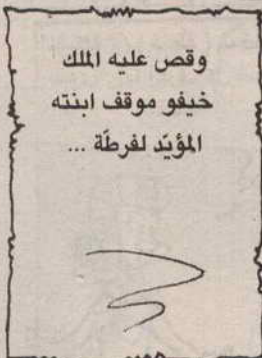 وقص عليه الملك
خيفو موقف ابنته
المؤيّد لفرطّة ...